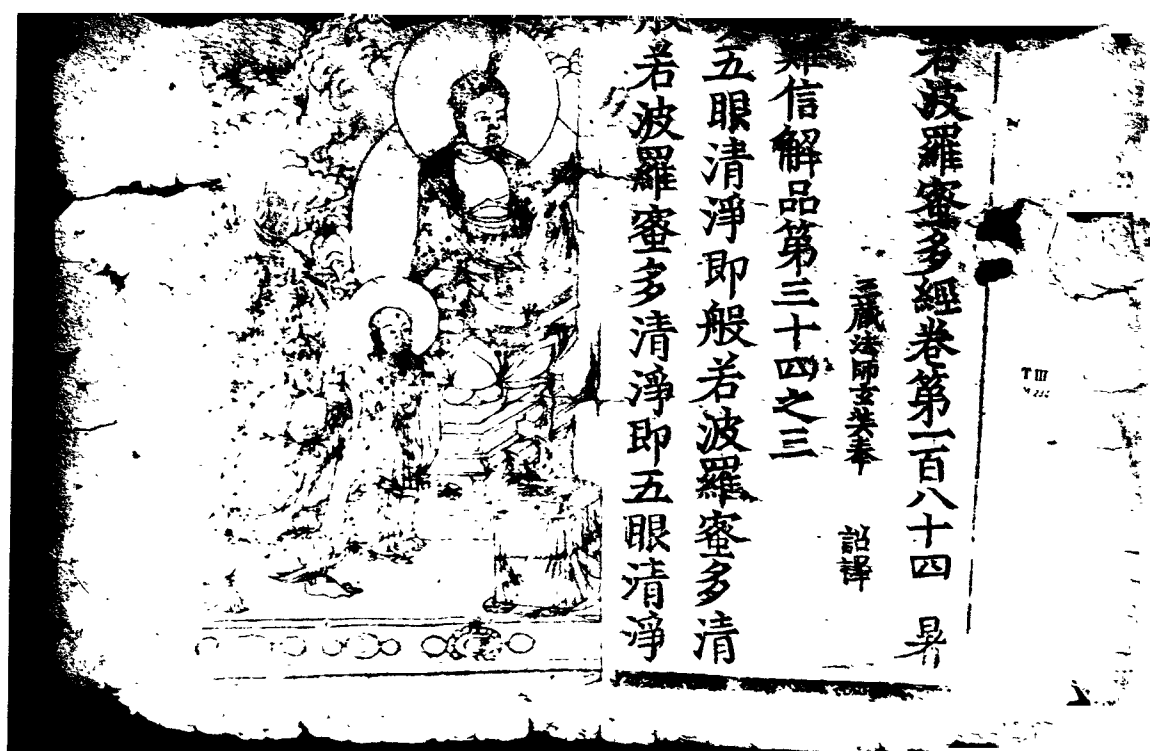 若波羅蜜多經卷第一百八十四
三藏法師玄奘奉 詔譯
難信解品第三十四之三
五眼清淨即般若波羅蜜多清
般若波羅蜜多清淨即五眼清淨
T III